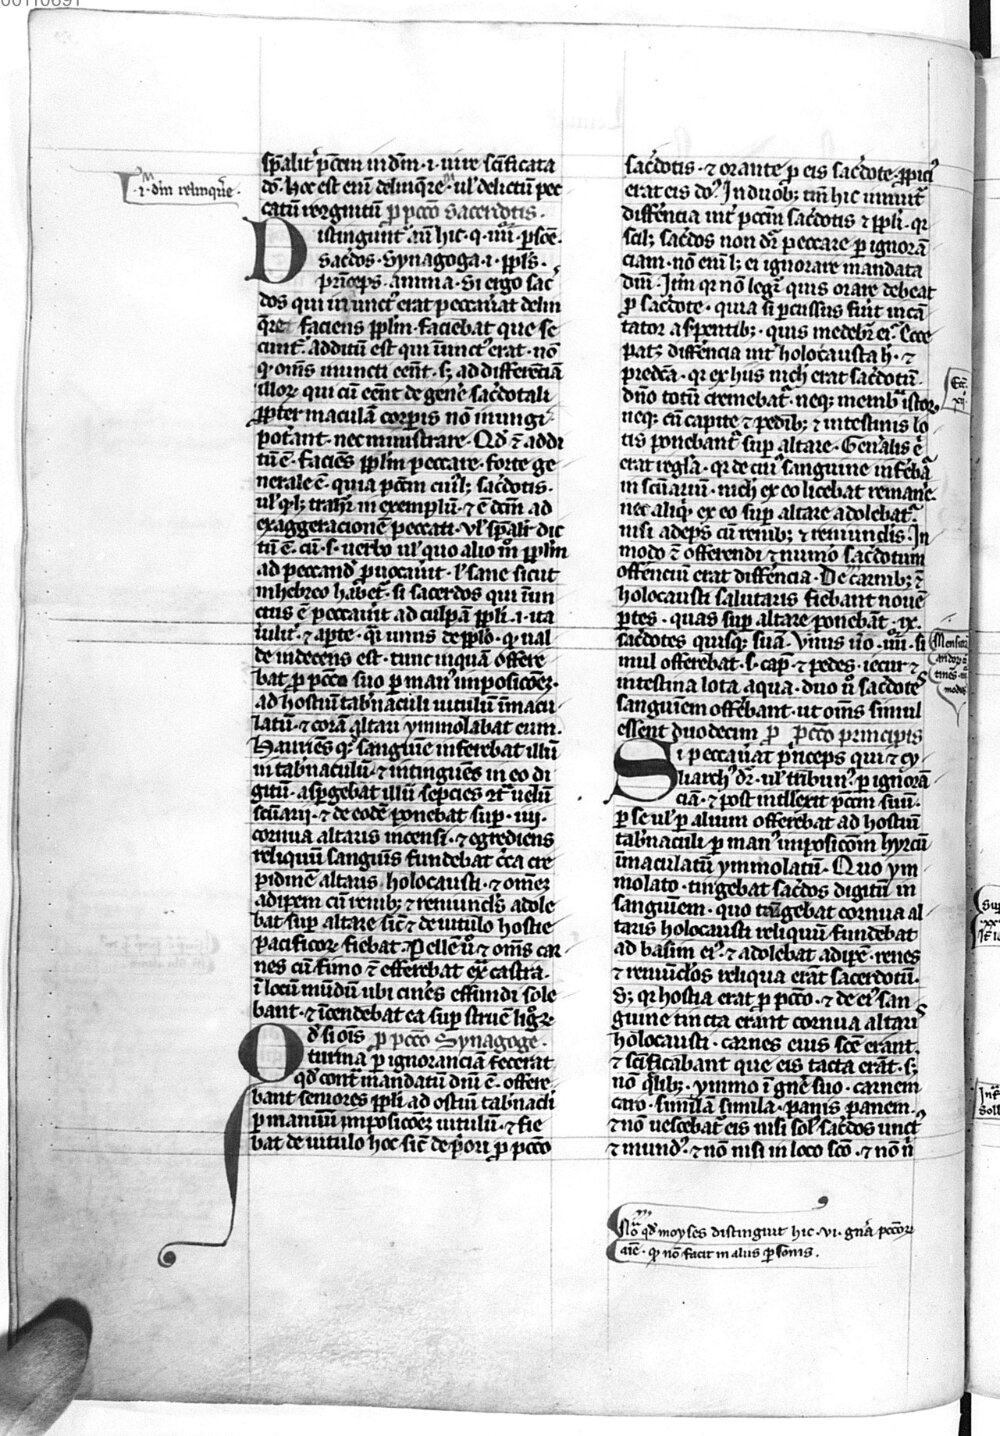 sp̄alit̄ pc̄em in dm̄ · i · uire sc̄ificata
do · hoc est eni delinq̄re · ul' delictū pec
catū reognitū p pcc̄o sacerdotis ·
· i · dm̄ relinq̄re ·
Distingūnt̄ aū hic · q · iiii · ꝑsoē ·
sac̄dos · Synagoga · i · ppl̄s ·
p̄nceps · anima · Si ergo sac̄
dos qui inunct' erat peccauat delin
q̄re faciens ppl̄m · faciebat que se
cunt̄ · additū est qui īunct' erat · nō
q · om̄s inuncti eēnt · s; ad diffeēnciā
illoꝝ qui cū eēnt de gen̄e sac̄dotali
ꝓpter maculā corꝑis nō inungi
pot̄ant · nec ministrare · Qd̄ ⁊ addi
tū ē · faciēs ppl̄m peccare · forte ge
nerale ē · quia pc̄m cuil; sac̄dotis ·
ul' ql; trahr̄ in exemplū · ⁊ ē dcm̄ ad
exaggeracionē peccati · Vl' sp̄alr̄ dic
tū ē · cū · s · uerbo ul' quo alio m̊ ppl̄m
ad peccand' ꝓuocauit · l' sane sicut
in hebreo hab̄et̄ · si sacerdos qui īun
ctus ē peccauīt ad culpā ppl̄i · i · ita
tulit̄ · ⁊ aꝑte · q̄i unus de ppl̄o · q ual
de indecens est · tunc inquā offere
bat p pcc̄o suo ꝑ man' imposicōeꝫ ·
ad hostiū tab̄naculi uitulū īmacu
latū · ⁊ corā altari ymmolabat eum ·
Hauriēs q sanguinē inferebat illū
in tab̄naculū · ⁊ intinguēs in eo di
gitū · asꝑgebat illū sepcies 9t' uelū
sc̄uarij · ⁊ de eodē ponebat suꝑ · iiij ·
cornua altaris incensi · ⁊ egrediens
reliquū sanguīs fundebat c̄ca cre
pidinē altaris holocausti · ⁊ om̄eꝫ
adipem cū renib; ⁊ renuncl̄s adole
bat suꝑ altare sic̄ ⁊ de uitulo hostie
pacificoꝝ fiebat · Pellē ū ⁊ om̄s car
nes cū fimo ⁊ efferebat ex̄ castra ·
ī locū mūdū ubi cin̄es effundi sole
bant · ⁊ īcendebat ea suꝑ struē lig̊ꝝ ·
Qd̄ si oīs p pcc̄o Synagoge ·
turma ꝑ ignoranciā fecerat
qd̄ cont̄ mandatū dn̄i ē · offere
bant seniores ppl̄i ad ostiū tab̄nacl̄i
ꝑ manuū imposicōeꝫ uitulū · ⁊ fie
bat de uitulo hoc sic̄ de p̄ori p pcc̄o
sac̄dotis · ⁊ orante p eis sac̄dote ꝓpici'
erat eis do' · In duob; tm̄ hic inuuīt̄
diffēncia int̄ pc̄m sac̄dotis ⁊ ppl̄i · qr
scil; sac̄dos non dr̄ peccare ꝑ ignorā
ciam · nō eni l; ei ignorare mandata
dn̄i · Itm qr nō legit̄ quis orare debeat
p sac̄dote · quia si ꝑcussus fuit incā
tator a sꝑentib; · quis medebit̄ ei' · Ecce
pat; diffēncia int̄ holocausta h · ⁊
predc̄a · qr ex hiis nich' erat sac̄dotū ·
dn̄o totū cremebat̄ · neq; memb istoꝝ ·
neq; cū capite ⁊ pedib; ⁊ intestinis lo
tis ponebant̄ suꝑ altare · Gen̄alis ē
erat regl̄a · qr de cui' sanguine inf̄ebā
in sc̄uariū · nich ex eo licebat remane
nec aliq ex eo suꝑ altare adolebat̄ ·
nisi adeps cū renib; ⁊ renunclis · In
modo ⁊ offerendi ⁊ num̄o sac̄dotum
offēnciū erat diffēncia · De carnib; ⁊
holocausti salutaris fiebant nouē
ꝑtes · quas suꝑ altare ponebāt · ix ·
sac̄dotes quisq; suā · Vnus ūo · iiii · si
mul offerebat · s · cap̄ · ⁊ pedes · iecur ⁊
intestina lota aqua · duo ū sac̄dotes
sanguiem offēbant · ut om̄s simul
essent duodecim p pcc̄o principis
Si peccau̅at p̄nceps qui ⁊ cy
liarch' dr̄ · ul' tribun' · ꝑ ignorā
ciā · ⁊ post intllexit pc̄m suū ·
ꝑ se ul' ꝑ alium offerebat ad hostiū
tab̄naculi ꝑ man' imposicōm hyrcū
īmaculatū ymmolatū · Quo ym
molato · tingebat sac̄dos digitū in
sanguiem · quo tangebat cornua al
taris holocausti reliquū fundebat
ad basim ei' · ⁊ adolebat adipē · renes
⁊ renūclos reliqua erāt sacerdotū ·
S; qr hostia erat p pcc̄o · ⁊ de ei' san
guine tincta erant cornua altaris
holocausti · carnes eius sc̄e erant
⁊ sc̄ificabant que eis tacta erāt · s;
nō q̄lib; · ymmo ī gn̄e suo · carnem
caro · similā simila · panis panem ·
⁊ nō uescebat̄ eis nisi sol' sac̄dos unct'
⁊ mund' · ⁊ nō nisi in loco sc̄o · ⁊ nō n̄
xij
No qd̄ moyses distinguit hic · vi · gn̄a pcc̄oꝝ
aīe · q nō facit in aliis ꝑsonis ·